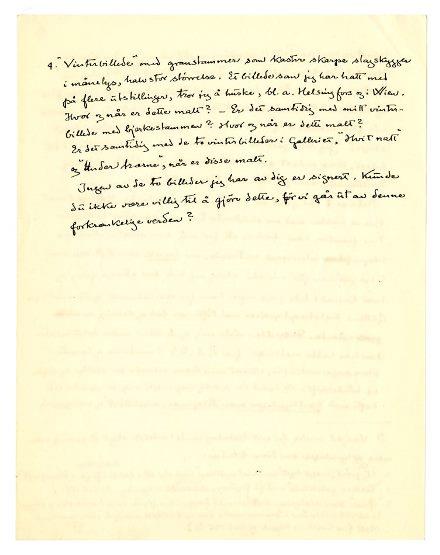 4. "Vinterbillede" med granstammer som kaster skarpe slagskygger
i månelys, halv stor størrelse. Et billede som jeg har hatt med
på flere utstillinger, tror jeg å huske, bl. a. Helsingfors og i Wien.
Hvor og når er dette malt? – Er det samtidig med mitt vinter-
billede med bjerkestammer? Hvor og når er dette malt?
Er det samtidig med de to vinterbilleder i Galleriet, "Hvit natt"
og "Under trærne", når er disse malt.
Ingen av de to billeder jeg har av dig er signert. Kunde
du ikke være villig til å gjöre dette, för vi går ut av denne
forkrenkelige verden?